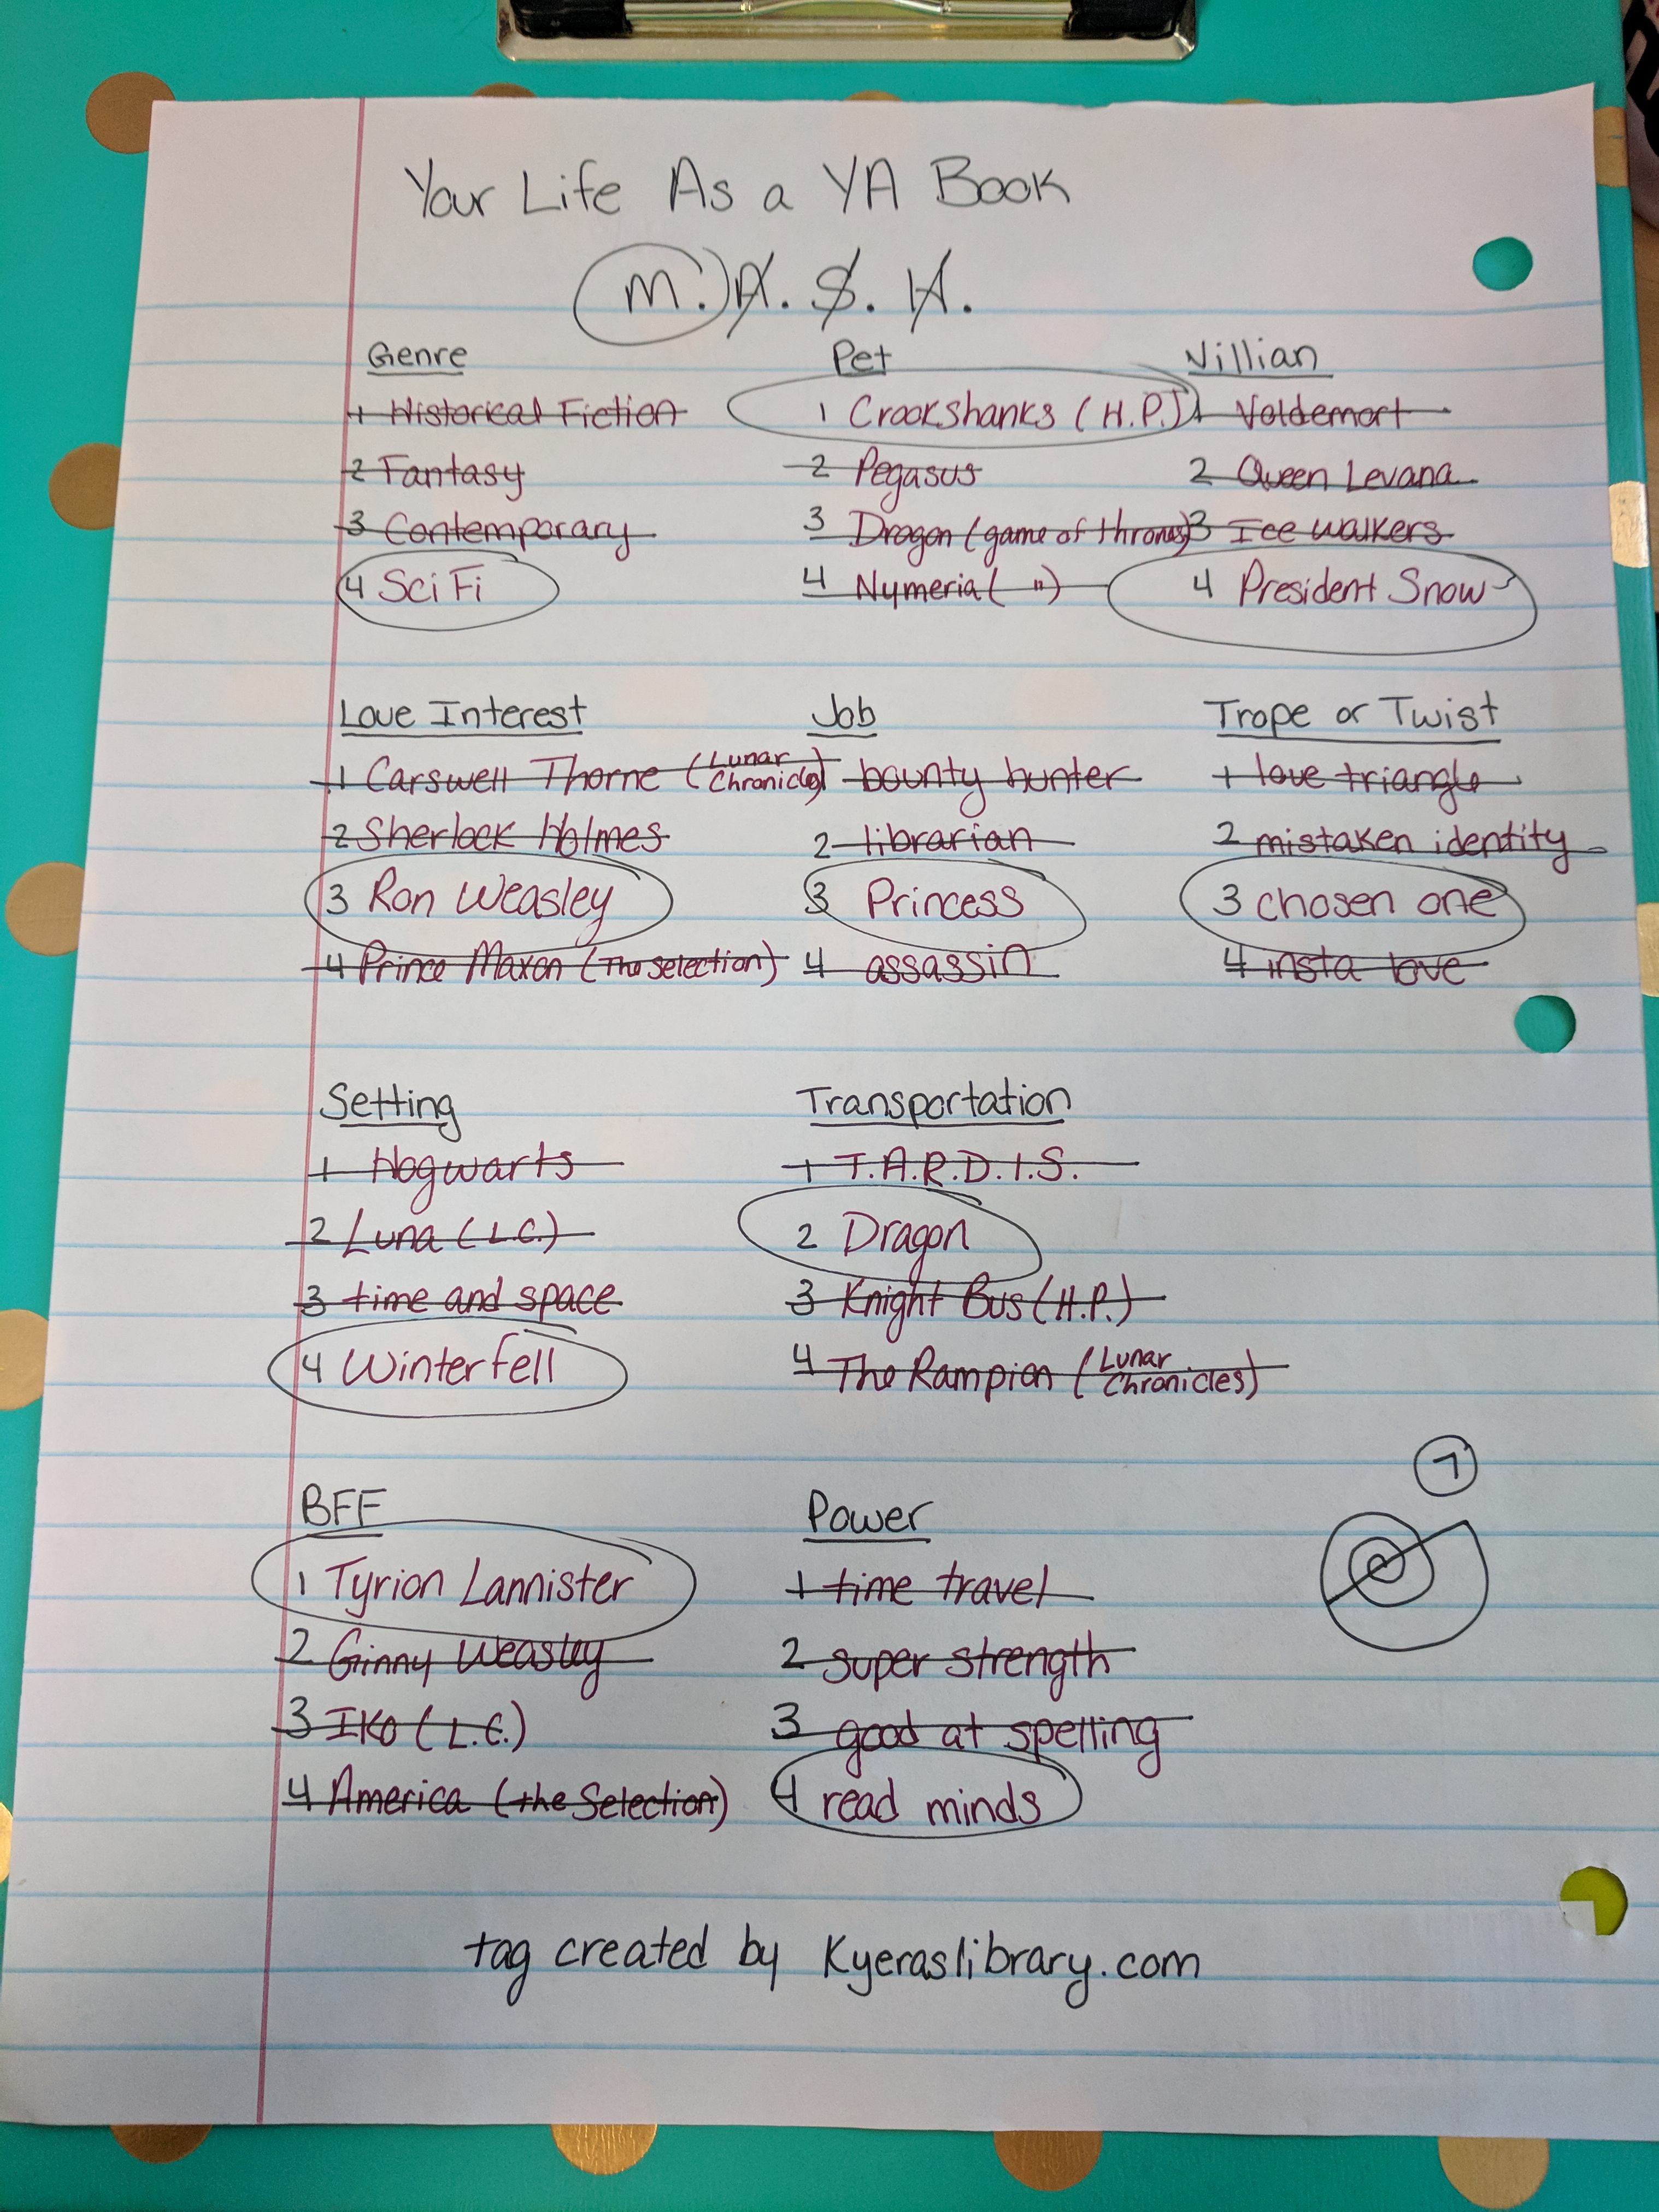 Your Life As a YA Book
M. A. S. H.
Genre
1 Historical Fiction
2 Fantasy
3 Contemporary
4 Sci Fi
Pet
1 Crookshanks (H.P.)
2 Pegasus
3 Dragon (game of thrones)
4 Nymeria ( " )
Villian
1 Voldemort
2 Queen Levana
3 Ice walkers
4 President Snow
Love Interest
1 Carswell Thorne (Lunar Chronicles)
2 Sherlock Holmes
3 Ron Weasley
4 Prince Maxon (The Selection)
Job
bounty hunter
2 librarian
3 Princess
4 assassin
Trope or Twist
1 love triangle
2 mistaken identity
3 chosen one
4 insta love
Setting
1 Hogwarts
2 Luna (L.C.)
3 time and space
4 Winterfell
Transportation
1 T.A.R.D.I.S.
2 Dragon
3 Knight Bus (H.P.)
4 The Rampion (Lunar Chronicles)
BFF
1 Tyrion Lannister
2 Ginny Weasley
3 IKO (L.C.)
4 America (the Selection)
Power
1 time travel
2 super strength
3 good at spelling
4 read minds
7
tag created by Kyeraslibrary.com